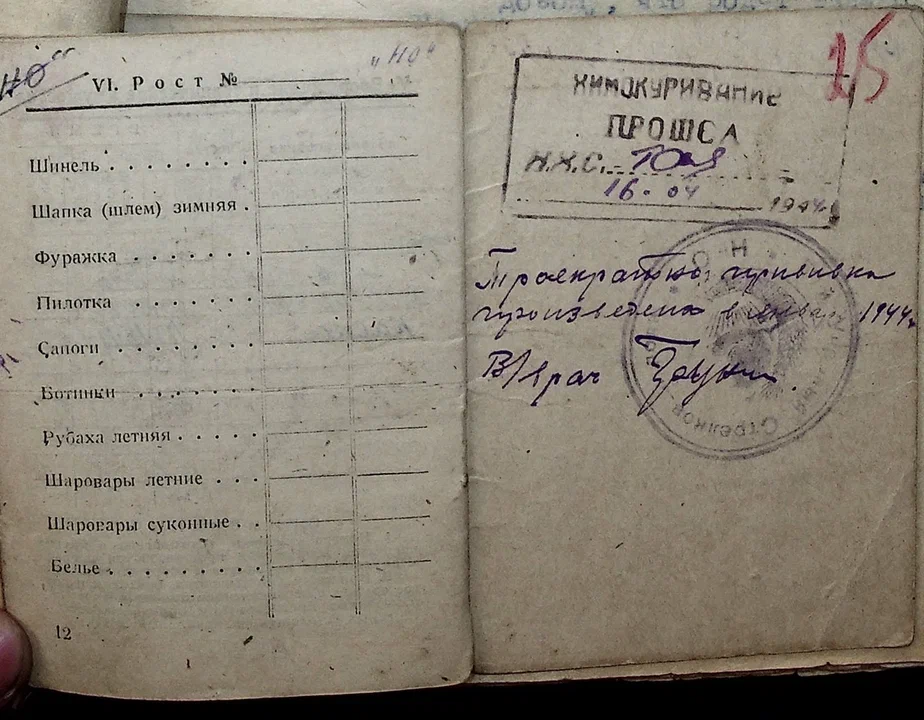 "НО"
"НО"
VI. Рост №
Шинель
Шапка (шлем) зимняя
Фуражка
Пилотка
Сапоги
Ботинки
Рубаха летняя
Шаровары летние
Шаровары суконные
Белье
12
15
ХИМОКУРИВАНИЕ
ПРОШЕЛ
Н.Х.С.
16.04 1944
Троекратно прививка
произведена в январе 1944г
В/врач
Стрелков